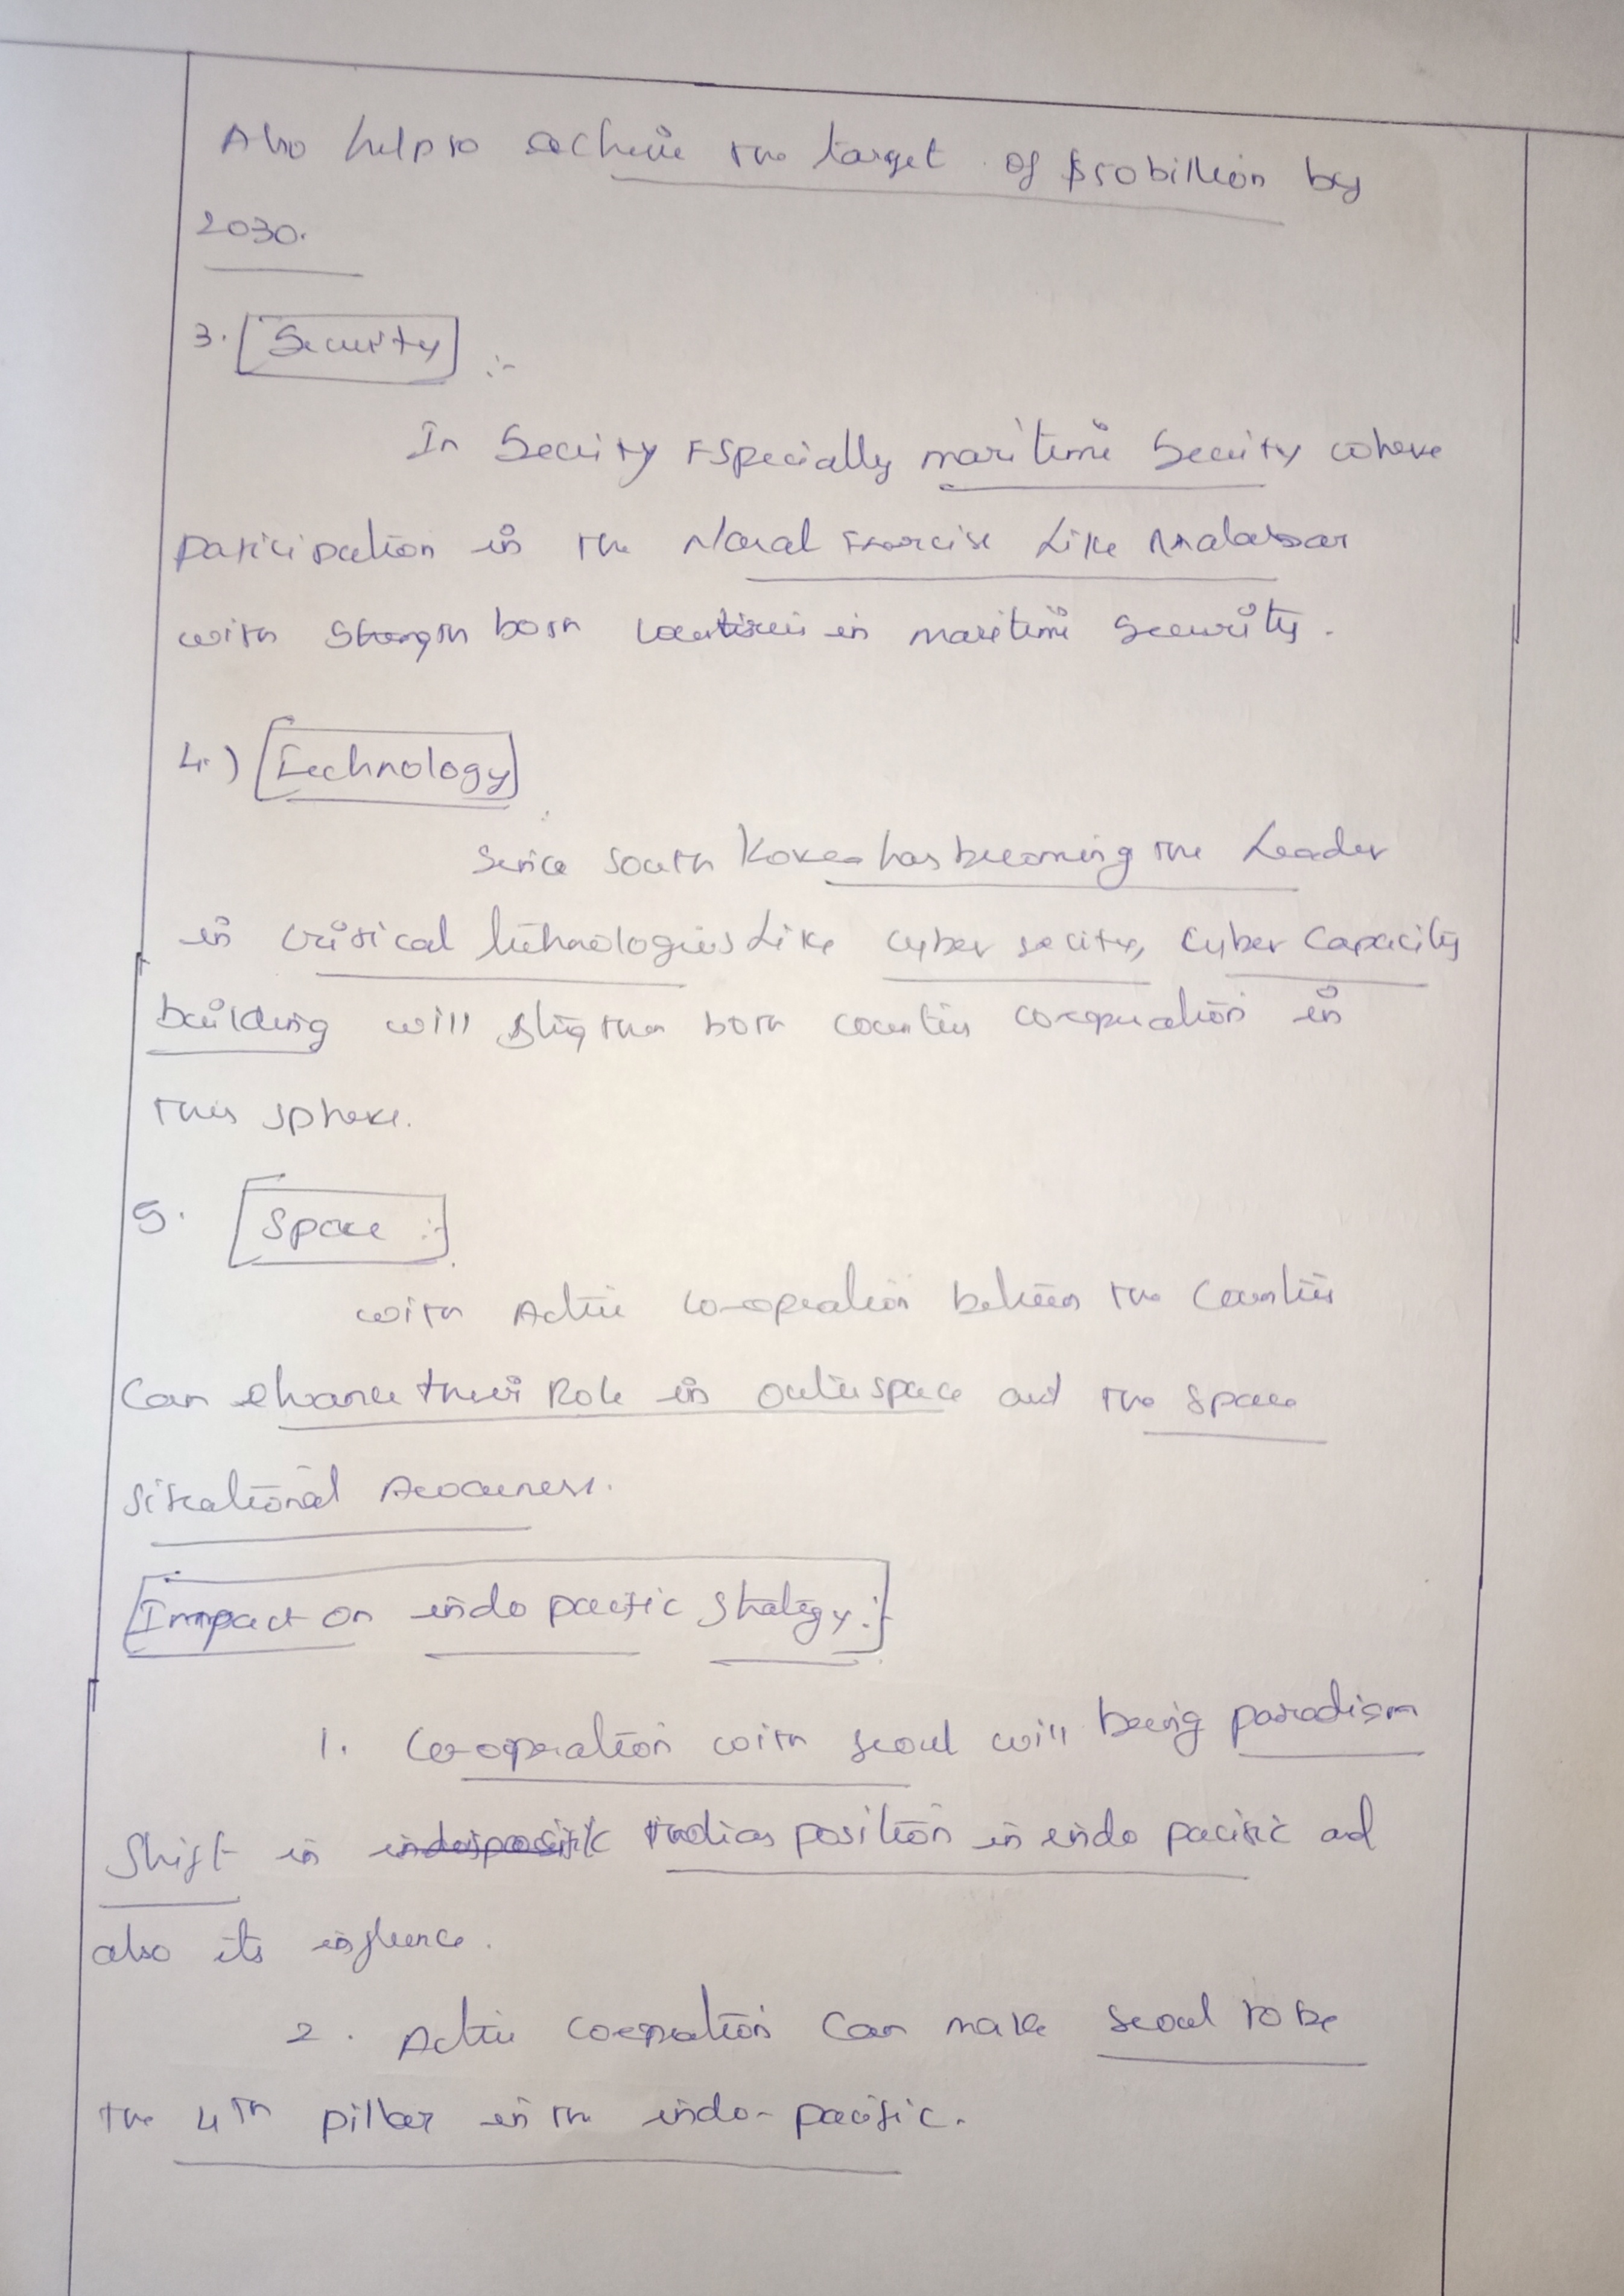 Also help to achieve the target of $50 billion by
2030.
3. Security :-
In Secuity Especially maritime Secuity where
participation in the Naval Exercise Like Malabar
with Strength both countries in maritime Security.
4.) Technology
Since South Korea has becoming the Leader
in critical technologies Like cyber secity, cyber Capacity
building will both counties cooperation in
this sphere.
5. Space :-
with Active co-operation between the Counties
Can ehance their Role in outerspace and the space
situational Awareness.
Impact on indo pacific Strategy :-
1. Co-operation with seoul will being paradism
Shift in indopacific Indias position in indo pacific ad
also its influence.
2. Active cooperation Can make seoul to be
the 4th pillar in the indo-pacific.